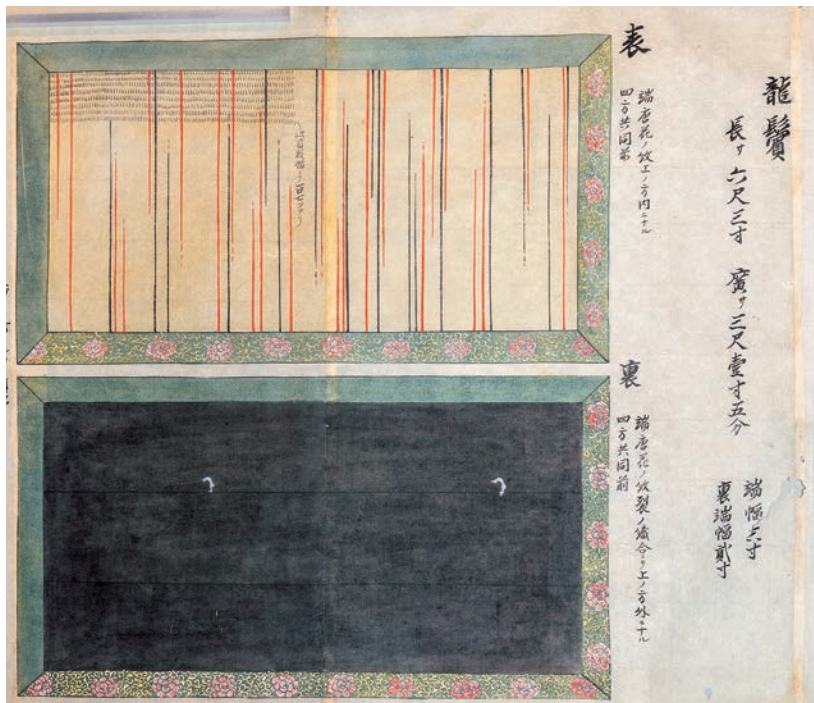 龍鬢
長サ 六尺三寸 廣サ 三尺壹寸五分
端幅六寸
裏端幅貳寸
表
端唐花ノ紋上ノ方内ニナル
四方共同前
裏
端唐花ノ紋裂ノ縫合ヨリ上ノ方外ニナル
四方共同前